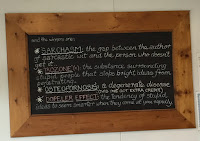 and the winners are:
* SARCHASM: the gap between the author
of sarcastic wit and the person who doesn't
get it.
* BOZONE(n): the substance surrounding
stupid people that stops bright ideas from
penetrating.
* OSTEOPORNOSIS: a degenerate disease.
(THIS ONE GOT EXTRA CREDIT)
* DOPELER EFFECT: the tendency of stupid
ideas to seem smarter when they come at you rapidly